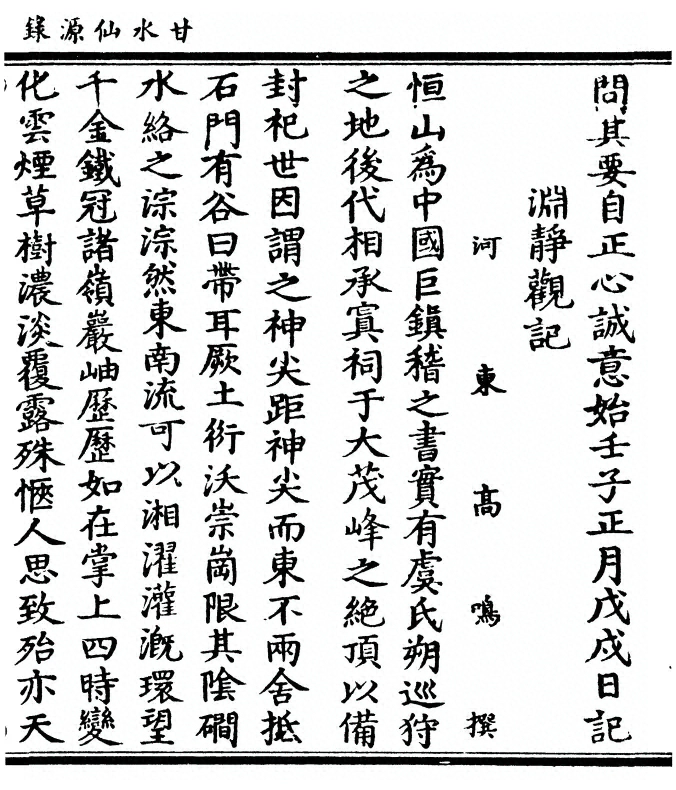 甘水仙源錄
問其要自正心誠意始壬子正月戊戌日記
淵靜觀記
河東高鳴撰
恒山爲中國巨鎭稽之書實有虞氏朔巡狩
之地後代相承寘祠于大茂峰之絶頂以備
封祀世因謂之神尖距神尖而東不兩舍抵
石門有谷曰帶耳厥土衍沃崇崗限其陰磵
水絡之淙淙然東南流可以湘濯灌漑環望
千金鐵冠諸嶺巖岫歷歷如在掌上四時變
化雲煙草樹濃淡覆露殊愜人思致殆亦天